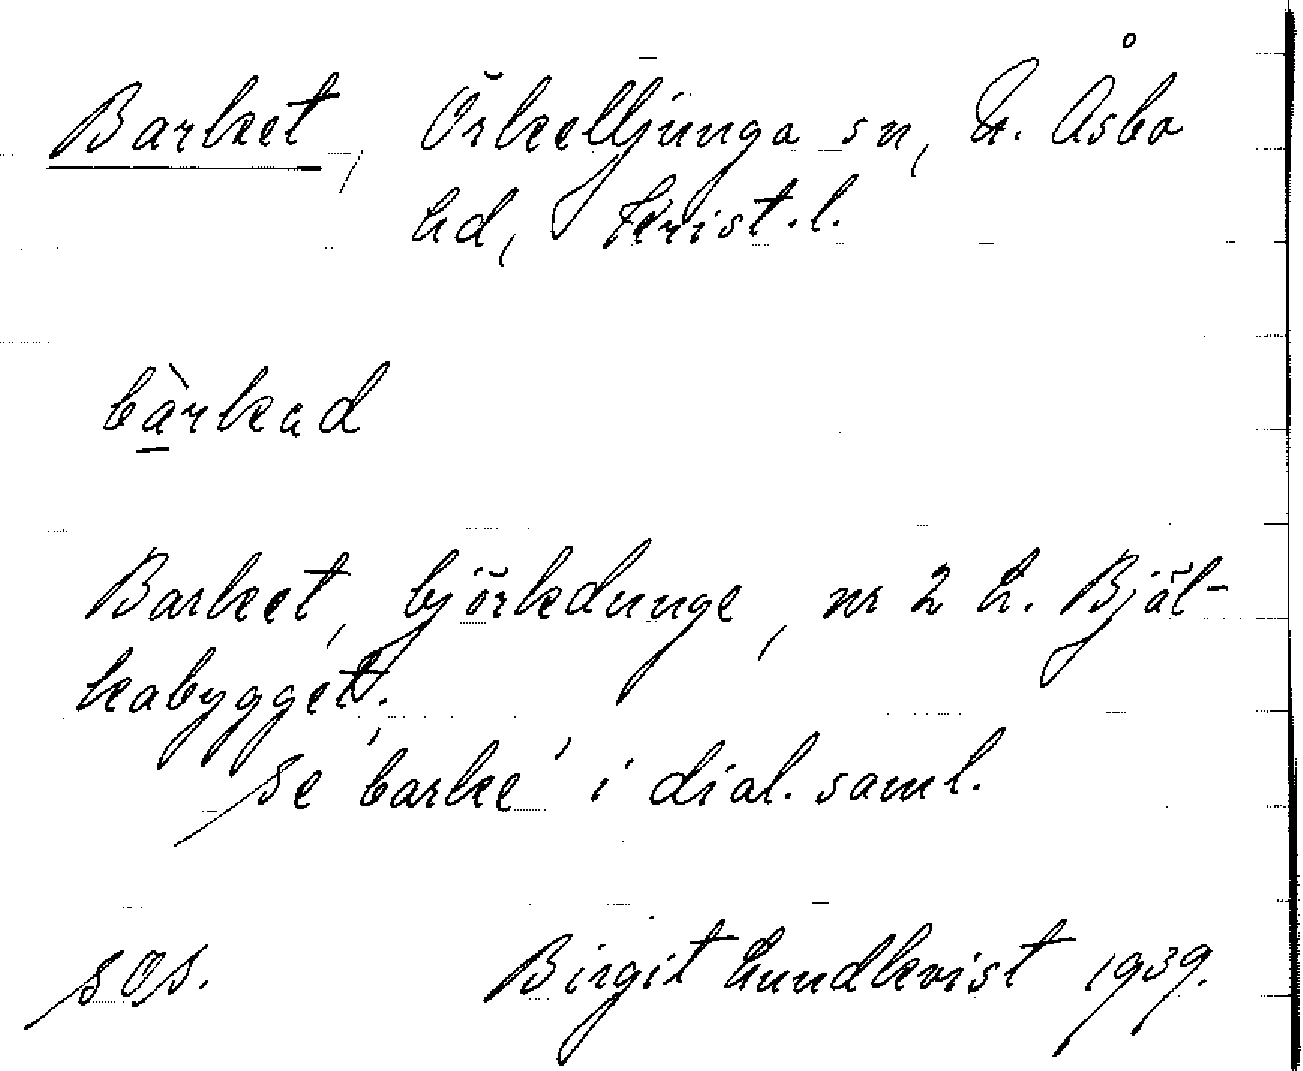 Barket, Örkelljunga sn, N. Åsbo
hd, Krist. l.
bàrkad
Barket, björkdunge, nr 2 L. Bjäl-
kabygget.
Se 'barke' i dial. saml.
SOS. Birgit Lundkvist 1939.